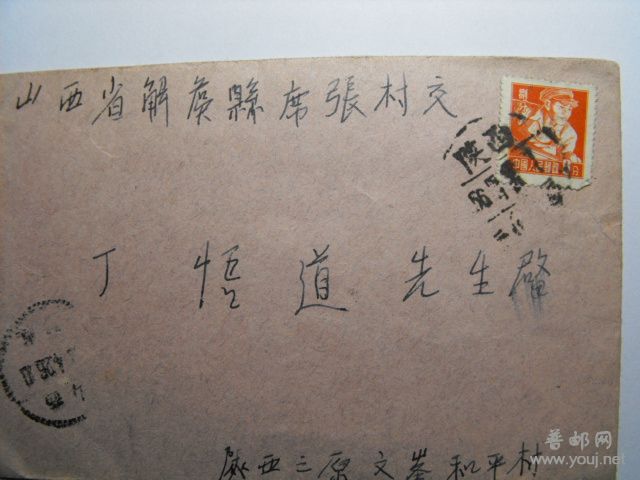 山西省解虞縣席張村交
中國人民郵政
陕西
丁悟道先生啓
陝西三原文峯和平村
普邮网
www.youj.net